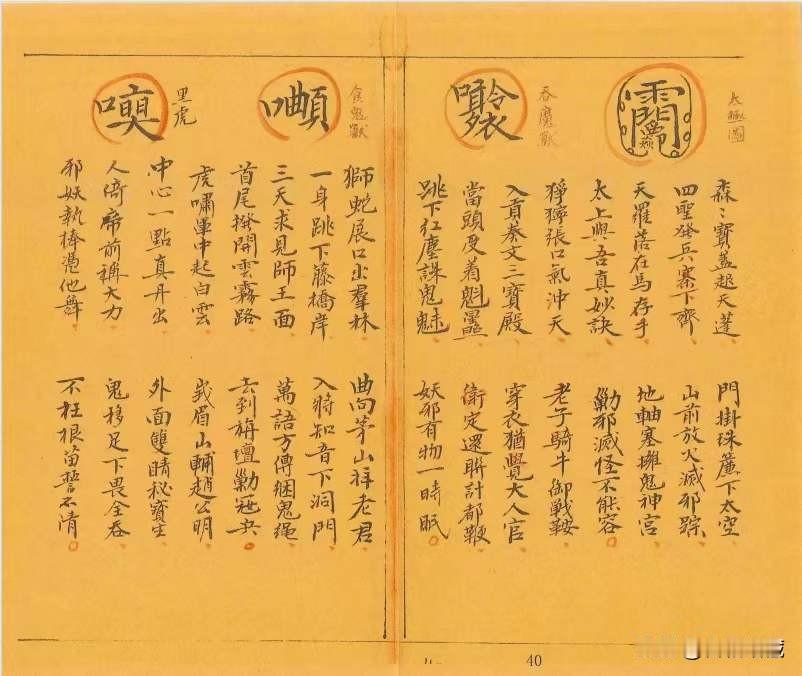 太極圖
森ミ寶蓋起天蓬 門掛珠簾下太空
四聖發兵寨下齊 山前放火滅邪踪
天羅落在馬存手 地軸塞擁鬼神宮
太上與吾真妙訣 勦邪滅怪不能容
吞魔獸
猙獰張口氣沖天 老子騎牛御戰鞍
入貢奏文三寶殿 穿衣猶覺大人官
當頭度着魁 衛定還聯計都鞭
跳下紅塵誅鬼魅 妖邪有物一時眠
食鬼獸
獅蛇展口出羣林 曲向茅山拜老君
一身跳下藤橋岸 入將知音下洞門
三天求見師王面 萬語方傳綑鬼繩
首尾撥開雲霧路 去到旃壇勦冠兵
黑虎
虎嘯軍中起白雲 峩眉山輔趙公明
中心一點真丹出 外面雙睛秘寶生
人倚席前稱大力 鬼移足下畏全吞
邪妖執棒憑他舞 不枉根苗誓不清
40